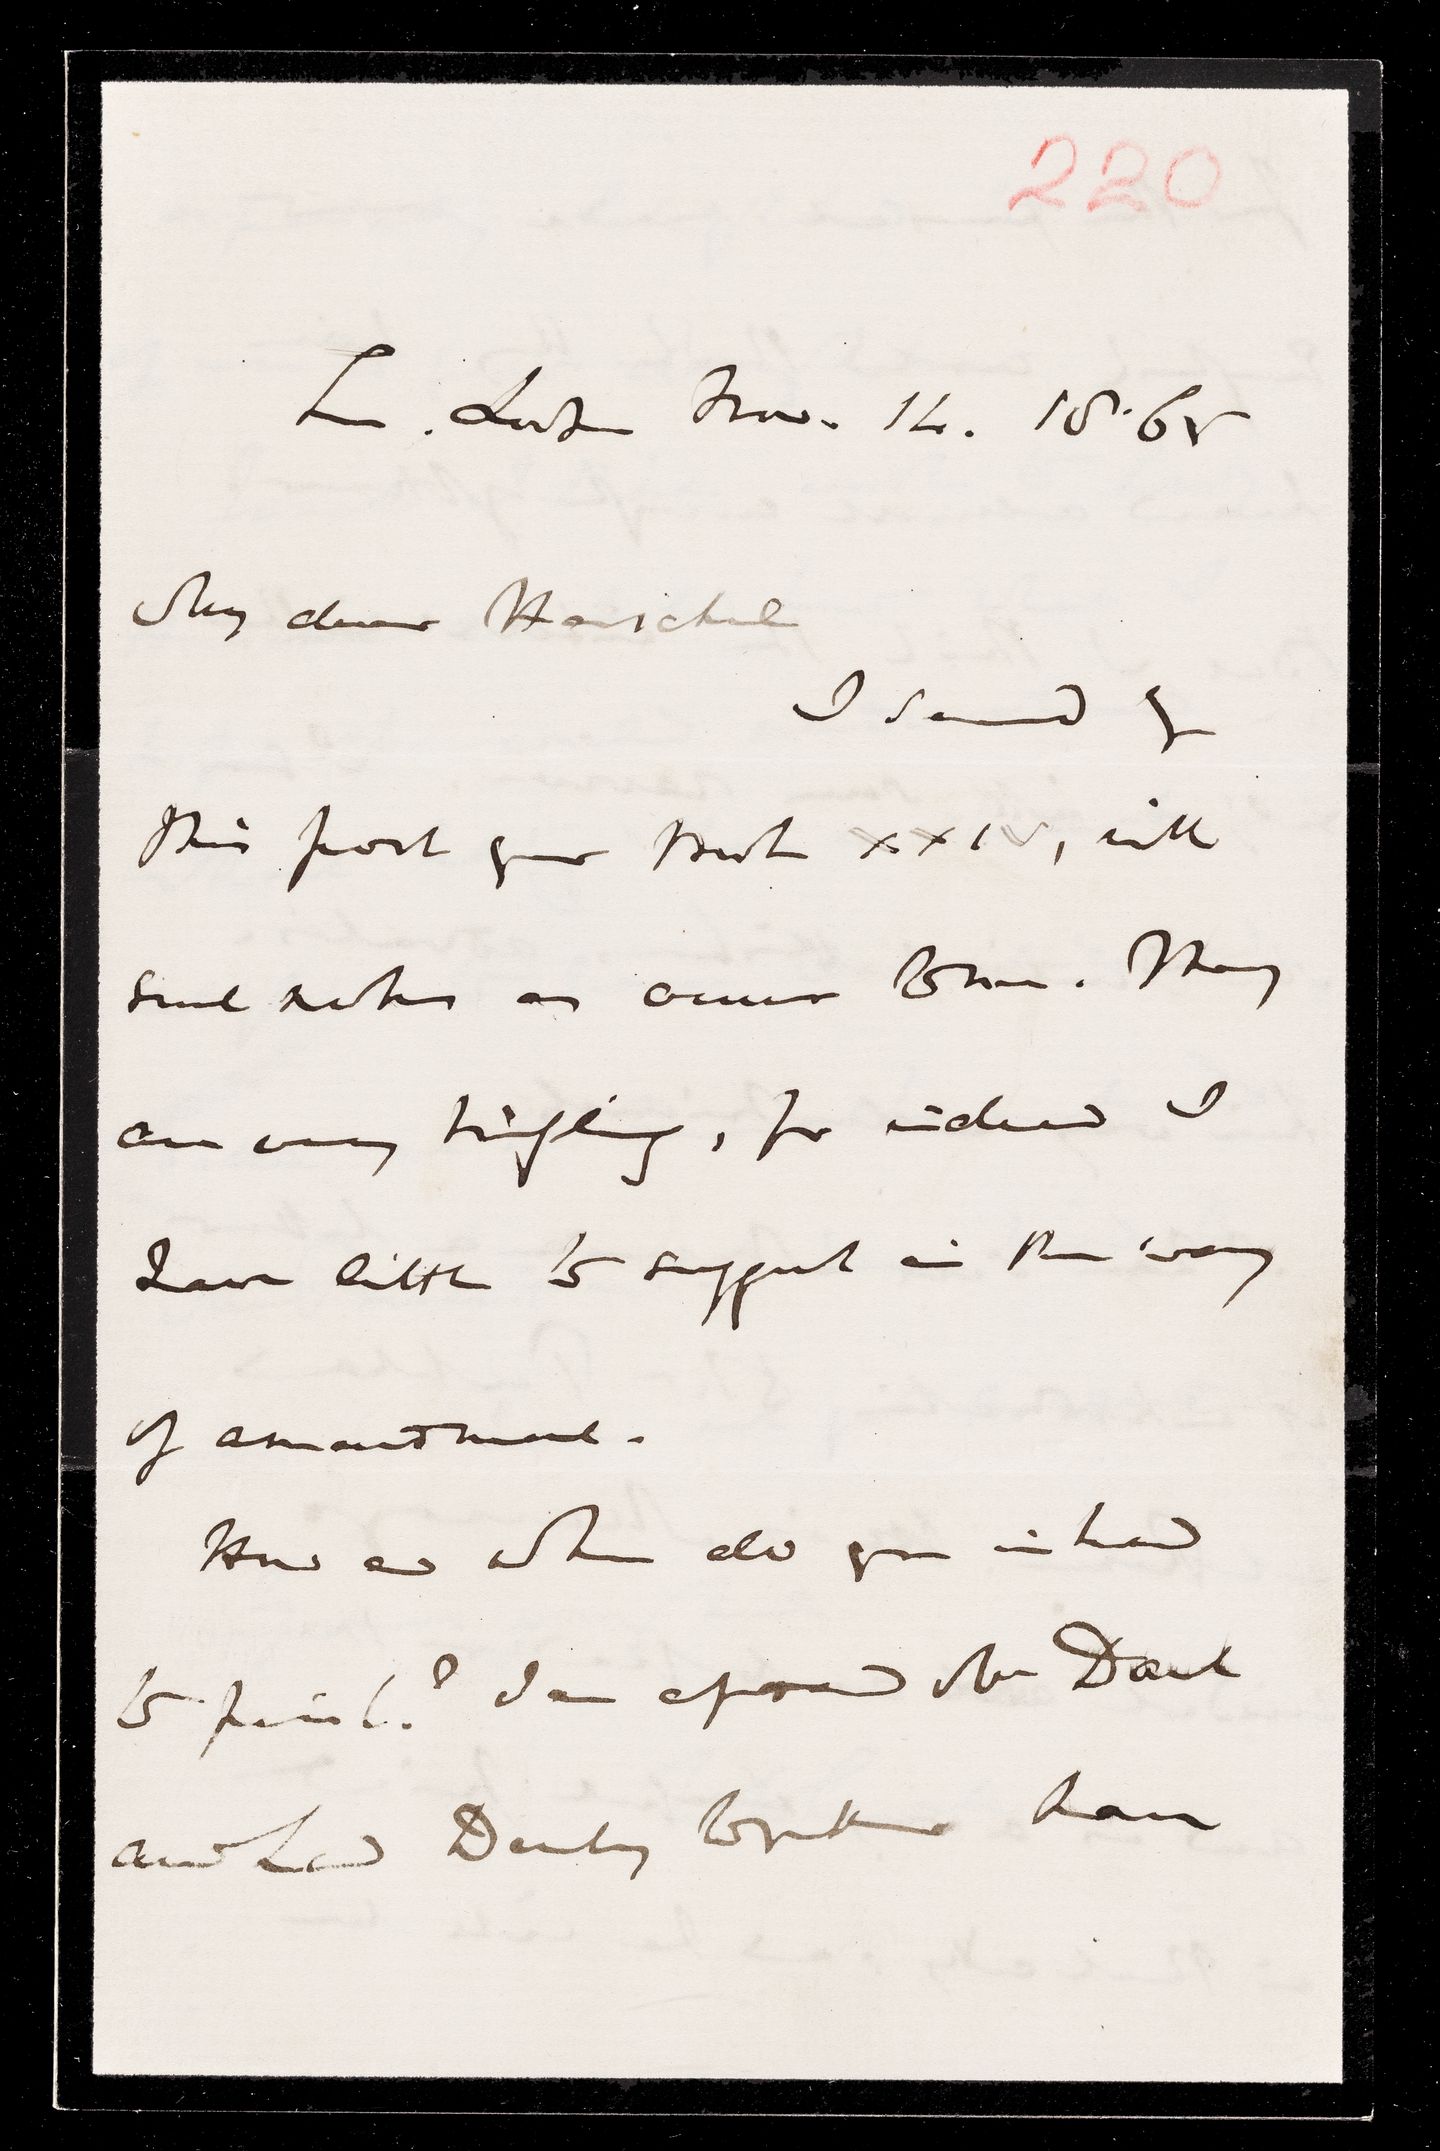 220
Tr. Lodge Nov. 14. 1865
My dear Herschel
I send by
this post your Book XXIV, with
such notes as occur to me. They
are very trifling, for indeed I
have little to suggest in the way
of amendment.
How and when do you intend
to print? I am afraid Mr Dart
and Lord Derby together have